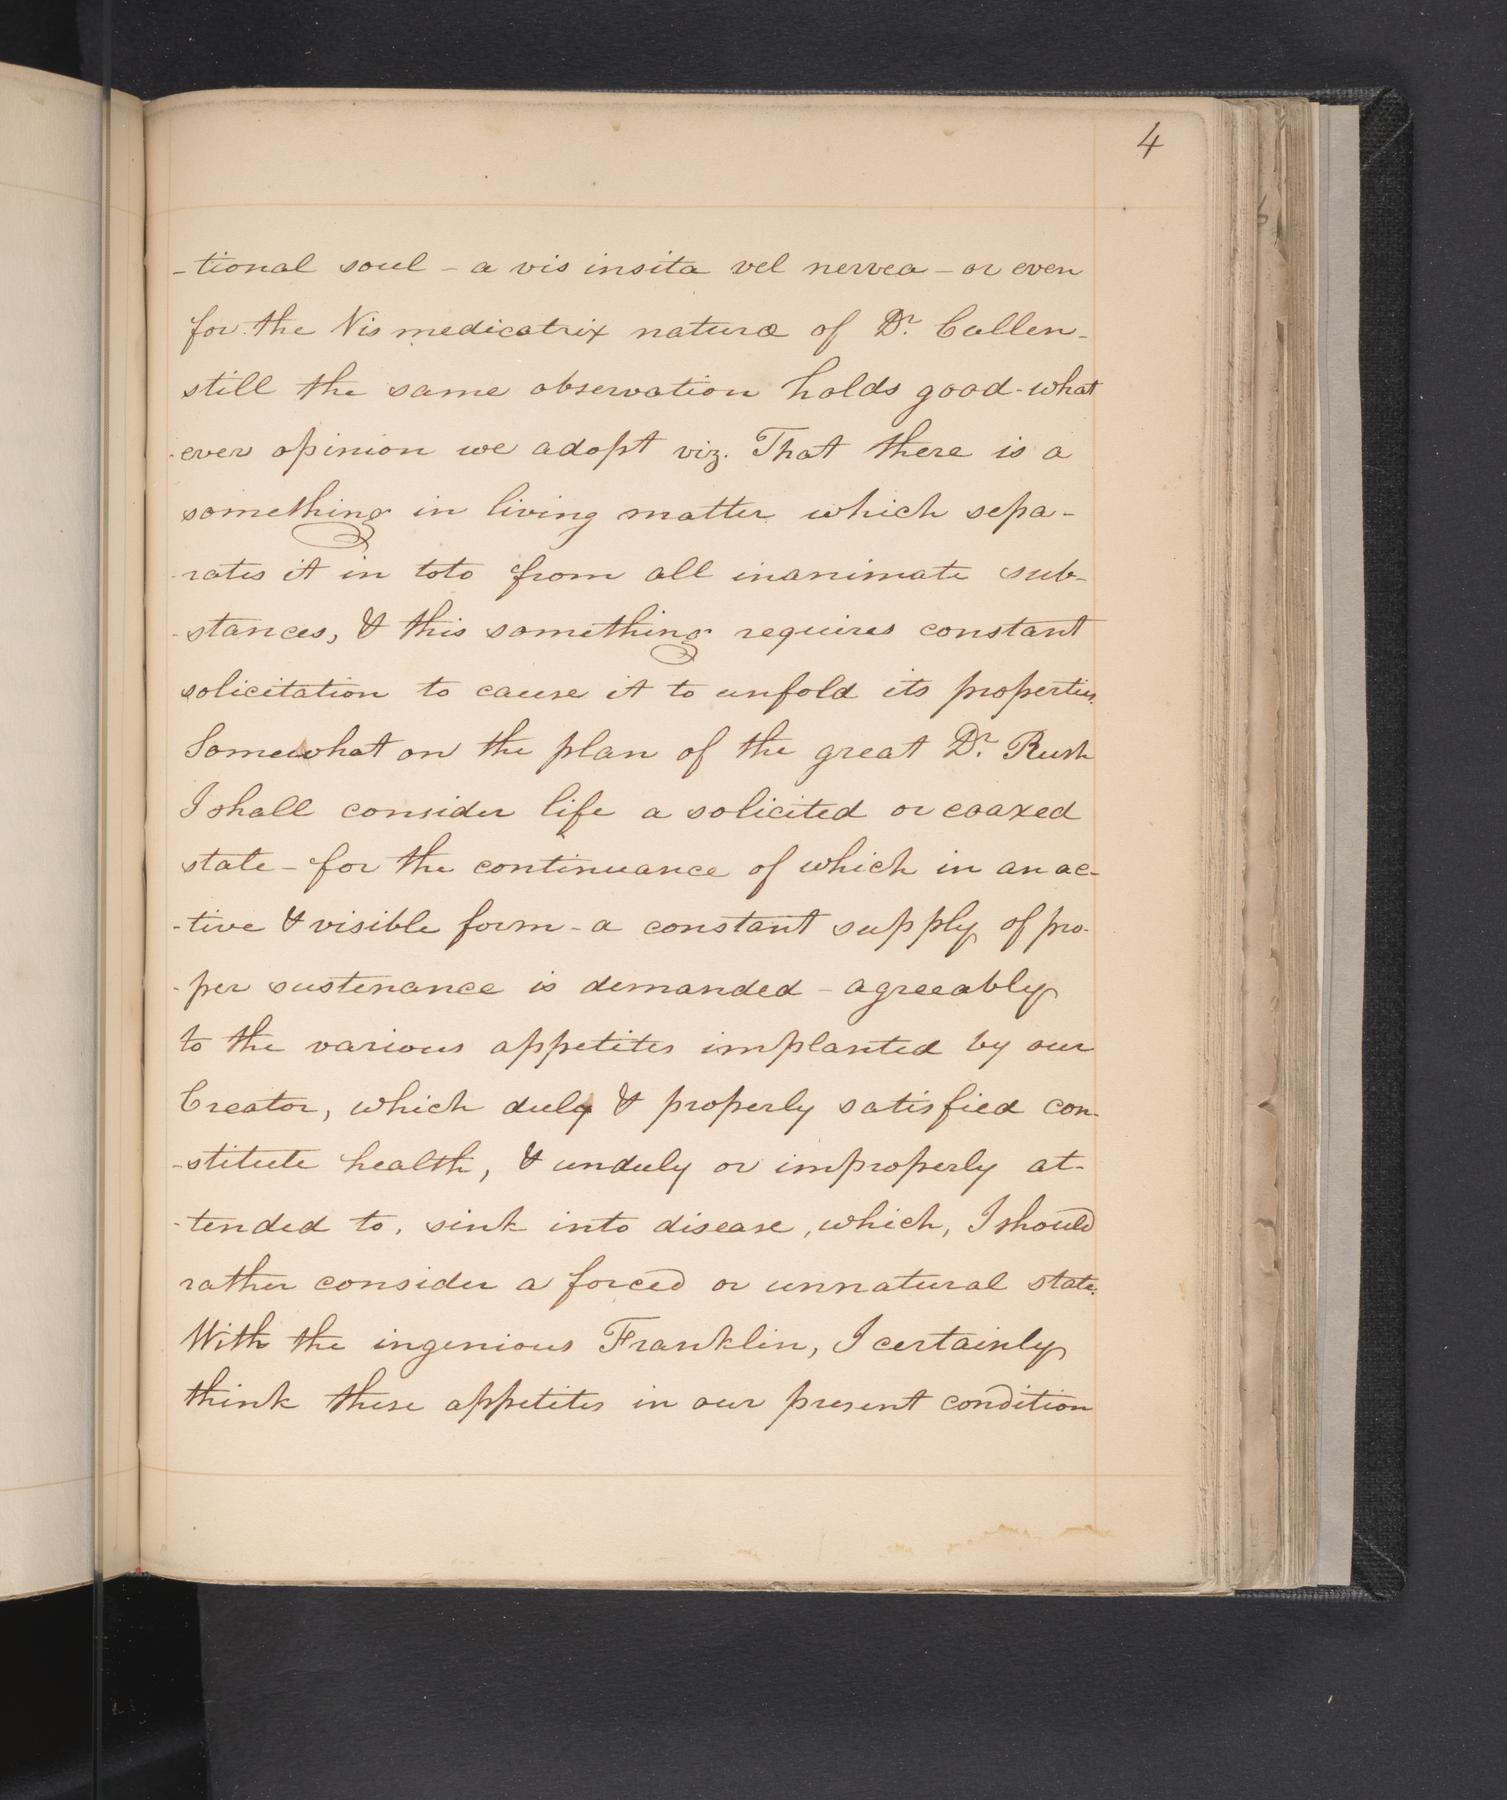 4
-tional soul - a vis insita vel nervea - or even
for the Vis medicatrix naturæ of Dr. Cullen -
still the same observation holds good - what
-ever opinion we adopt viz. That there is a
something in living matter which sepa-
-rates it in toto from all inanimate sub-
-stances, & this something requires constant
solicitation to cause it to unfold its properties.
Somewhat on the plan of the great Dr. Rush
I shall consider life a solicited or coaxed
state - for the continuance of which in an ac-
-tive & visible form - a constant supply of pro-
-per sustenance is demanded - agreeably
to the various appetites implanted by our
Creator, which duly & properly satisfied con-
-stitute health, & unduly or improperly at-
-tended to, sink into disease, which, I should
rather consider a forced or unnatural state.
With the ingenious Franklin, I certainly
think these appetites in our present condition